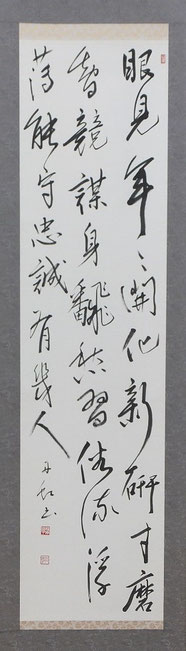 眼見年々開化新研才磨
智競謀身飜愁習俗流浮
薄能守忠誠有幾人